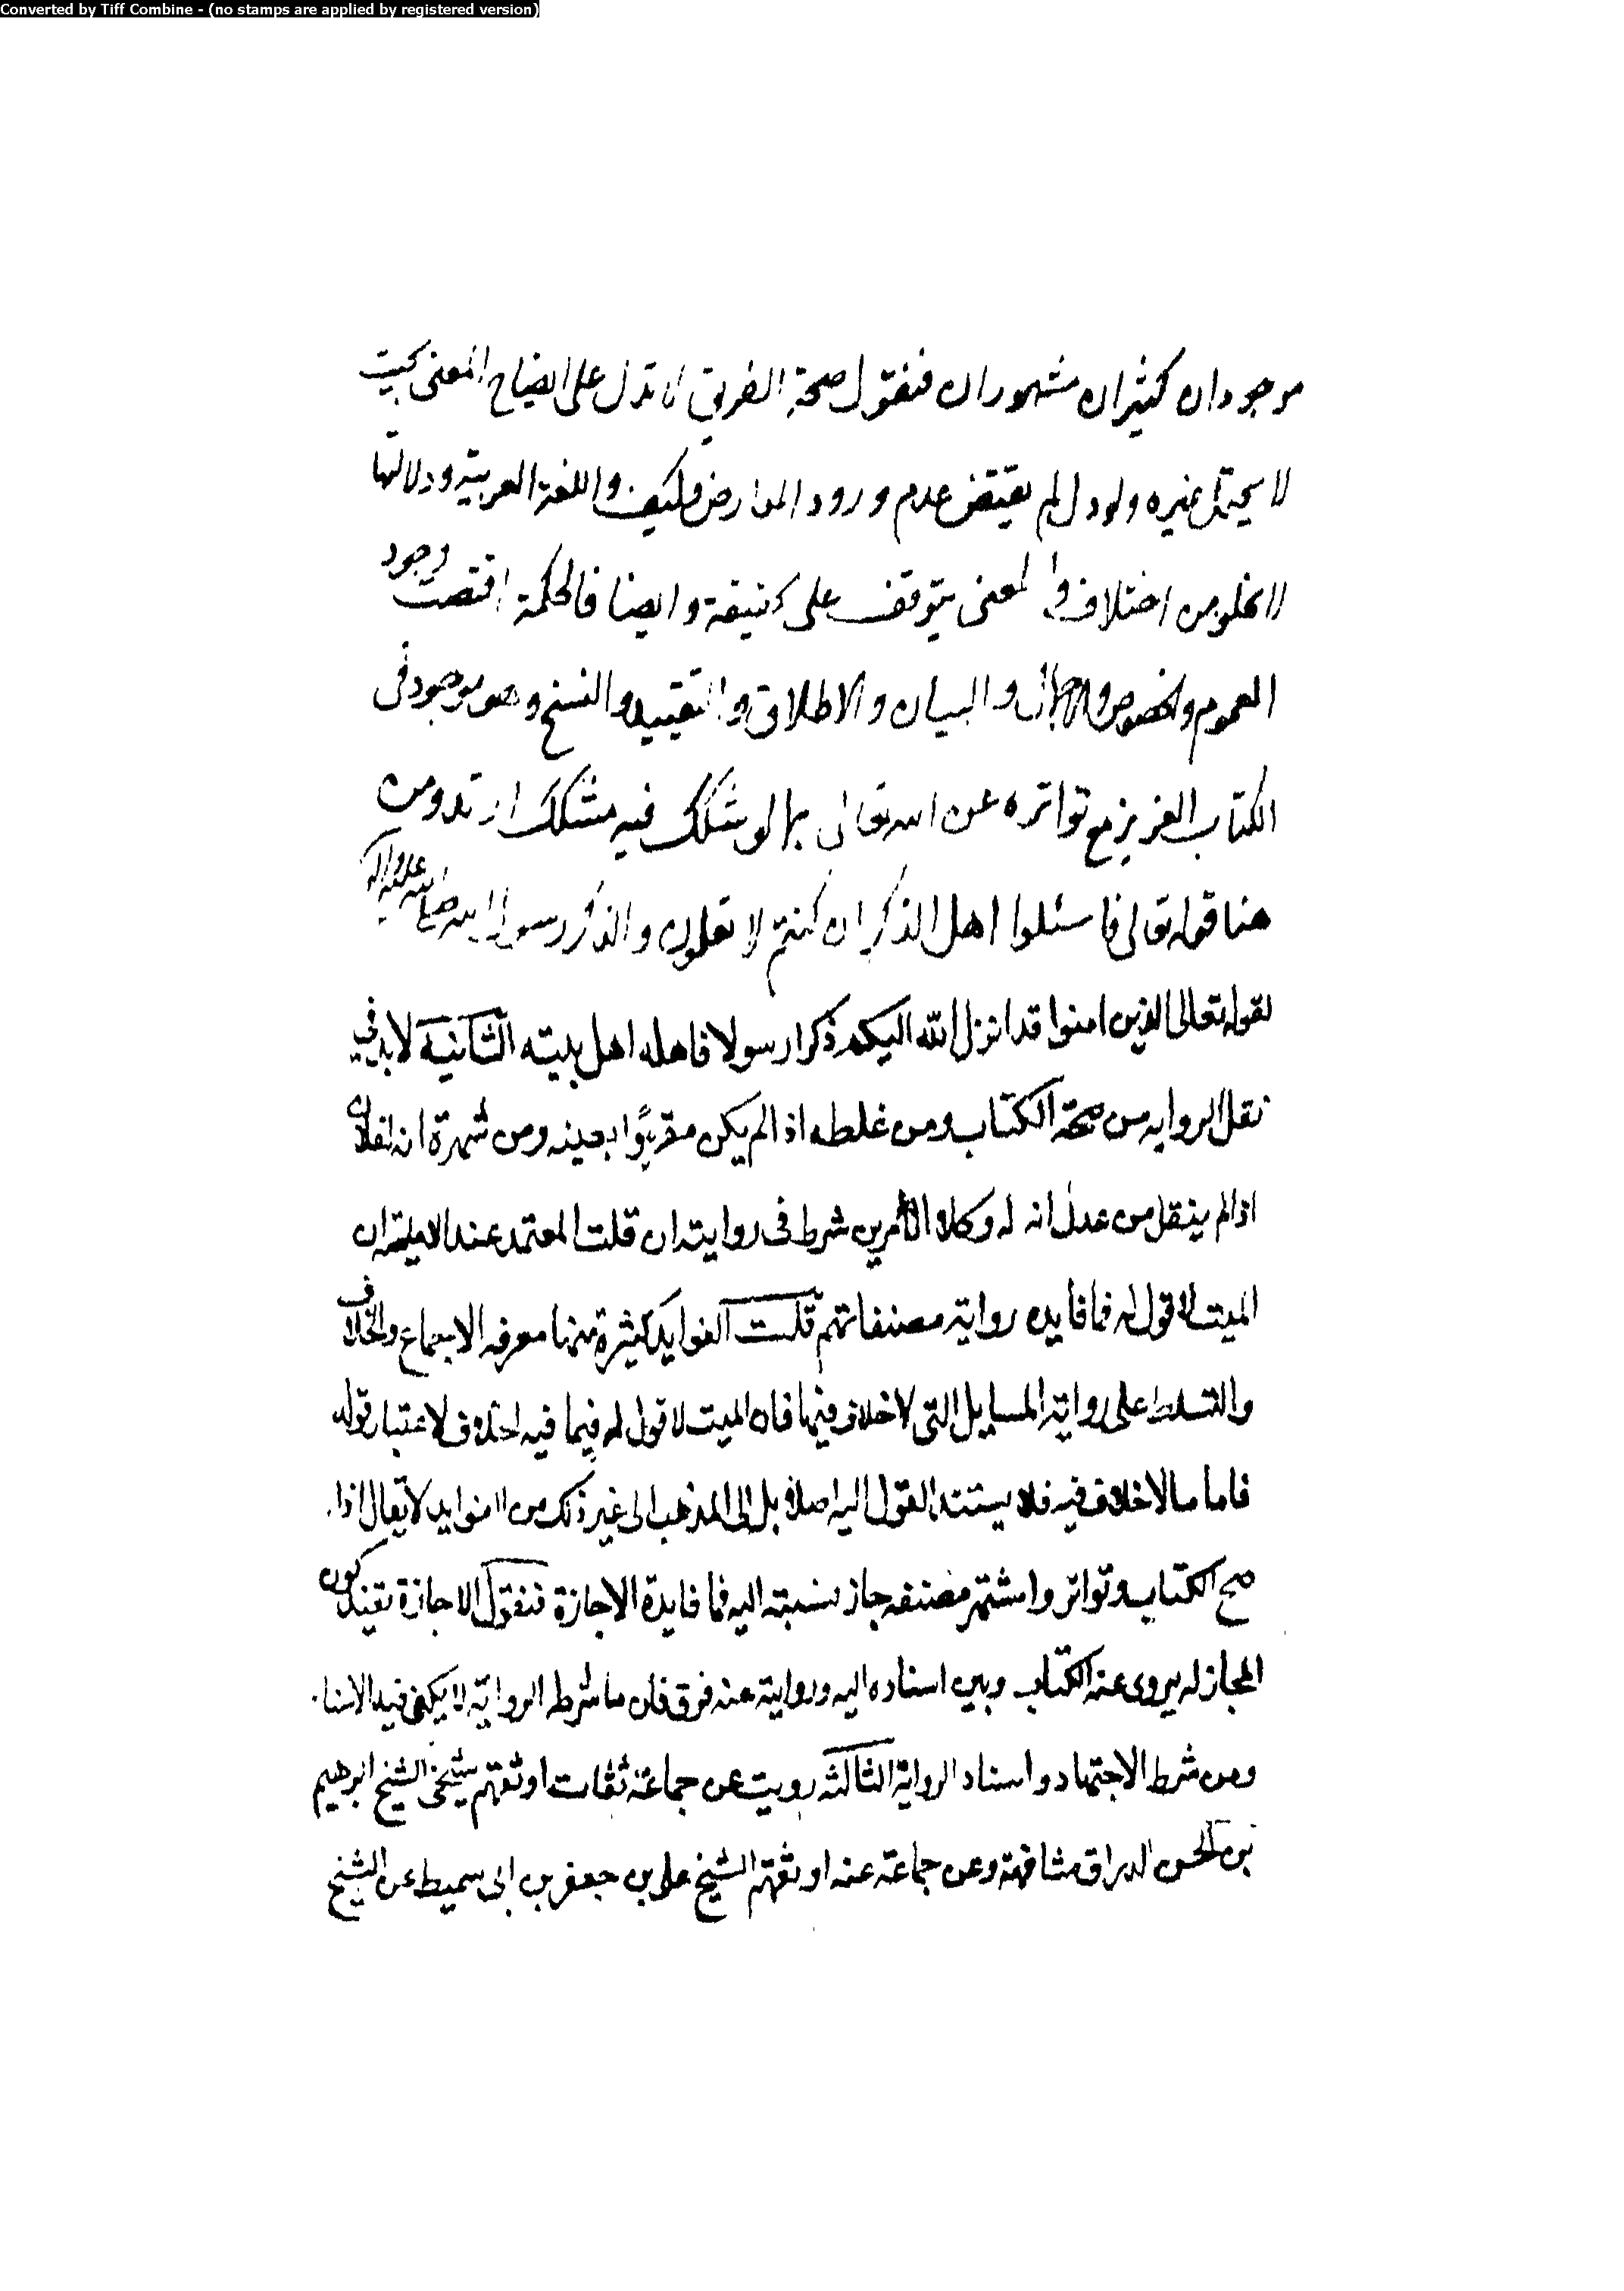 Converted by Tiff Combine - (no stamps are applied by registered version)
موجودان كثيران مشهوران فنقول صحة الطريق لا تدل على ايضاح المعنى بحيث
لا يحتمل غيره ولو دل لم يقتض عدم ورود المعارض وكيف واللغة العربية ودلالتها
لا تخلو من اختلاف والمعنى يتوقف على وايضا فالحكمة اقتضت وجود
العموم والخصوص والاجمال والبيان والاطلاق والتقييد والنسخ وهو موجود في
الكتاب العزيز مع تواتره عن الله تعالى لو شكك فيه مشكك ارتد ومن
هنا قوله تعالى فاسئلوا اهل الذكر ان كنتم لا تعلمون والذكر رسول الله صلى الله عليه واله
لقوله تعالى الذين امنوا قد انزل الله اليكم ذكرا رسولا فاهله اهل بيته الثانية لا بد في
نقل الرواية من صحة الكتاب ومن غلطه اذا لم يكن مقروا بعينه ومن شهرة انه لفلان
اذا لم ينقل من عدل انه له وكلا الامرين شرط في روايته ان قلت المعتمد عند الامامية ان
الميت لا قول له فما فايدة رواية مصنفاتهم قلت الفوايد كثيرة منها معرفه الاجماع والخلاف
والتسلط على رواية المسايل التي لا خلاف فيها فان الميت لا قول له فيما فيه الخلاف لا عتبار قوله
فاما ما لا خلاف فيه فلا يستند القول اليه اصلا بل الى المذهب الى غير ذلك من الفوايد لا يقال اذا
صح الكتاب وتواتر واشتهر مصنفه جاز نسبته اليه فما فايدة الاجازة فنقول الاجازة تفيد كون
المجاز له يروى عنه الكتاب وبين اسناده اليه وروايته عنه فرق فان ما شرطه الرواية لا يكفي فيه الاسناد
ومن شرط الاجتهاد واسناد الرواية الثالثه رويت عن جماعة ثقات اوثقهم شيخي الشيخ ابرهيم
بن الحسن الدراق مشافهة وعن جماعة عنه اوثقهم الشيخ علي بن جعفر بن ابي سميط عن الشيخ